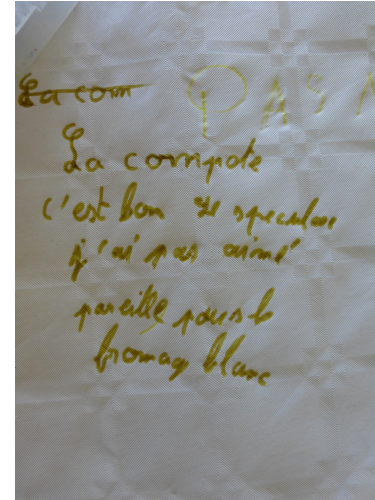 La com PASA
La compote
c'est bon le speculos
j'ai pas aimé
pareille pour le
fromag blanc